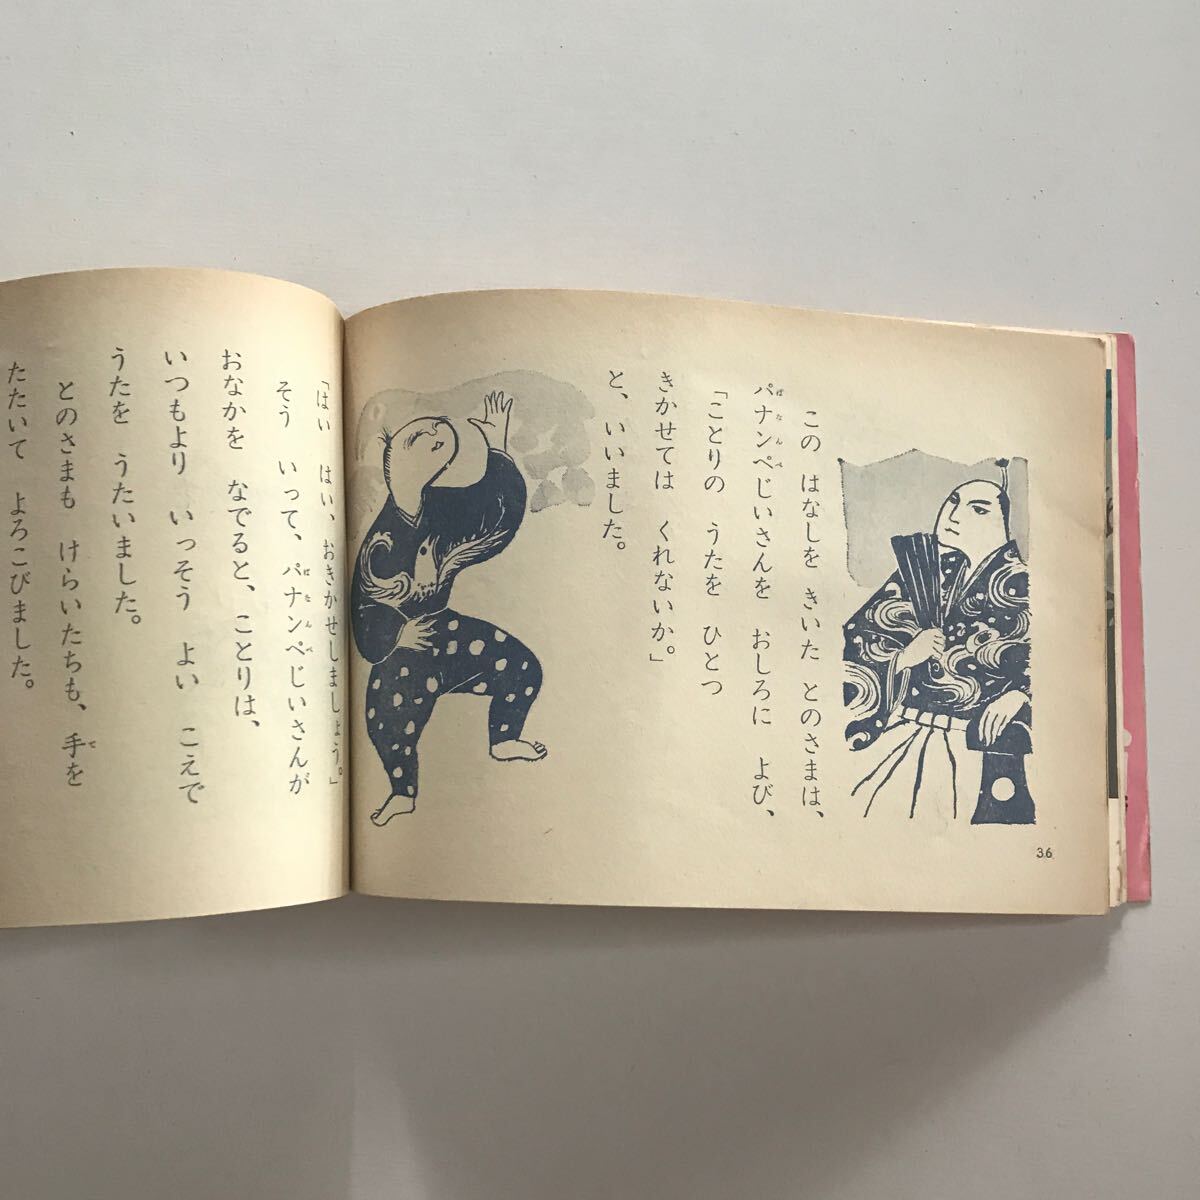 この はなしを きいた とのさまは、
パナンペじいさんを おしろに よび、
「ことりの うたを ひとつ
きかせては くれないか。」
と、いいました。
36
「はい はい、おきかせしましょう。」
そう いって、パナンペじいさんが
おなかを なでると、ことりは、
いつもより いっそう よい こえで
うたを うたいました。
とのさまも けらいたちも、手を
たたいて よろこびました。